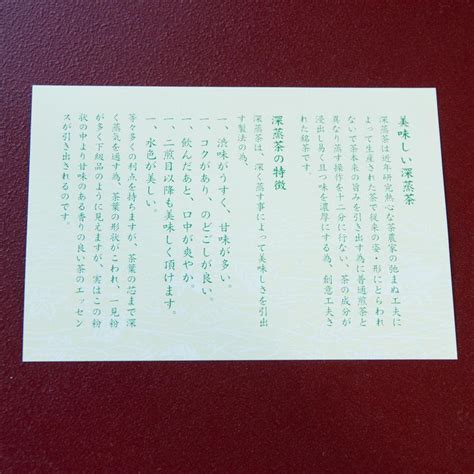 美味しい深蒸茶
深蒸茶は近年研究熱心な茶農家の弛まぬ工夫に
よって生産された茶で従来の姿・形にとらわれ
ないで茶本来の旨みを引き出す為に普通煎茶と
異なり蒸す操作を十二分に行ない、茶の成分が
浸出し易く且つ味を濃厚にする為、創意工夫さ
れた銘茶です。
深蒸茶の特徴
深蒸茶は、深く蒸す事によって美味しさを引出
す製法の為、
一、渋味がうすく、甘味が多い。
一、コクがあり、のどごしが良い。
一、飲んだあと、口中が爽やか。
一、二煎目以降も美味しく頂けます。
一、水色が美しい。
等々多くの利点を持ちますが、茶葉の芯まで深
く蒸気を通す為、茶葉の形状がこわれ、一見粉
が多く下級品のように見えますが、実はこの粉
状の中より甘味のある香りの良い茶のエッセン
スが引き出されるのです。